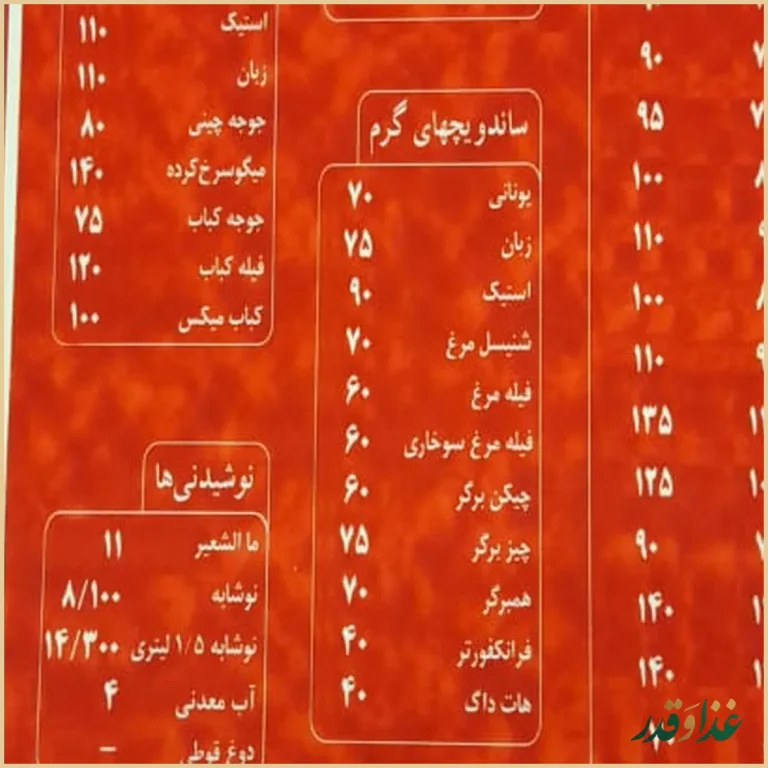 ۹۰
۹۵
۱۰۰
۱۱۰
۱۰۰
۱۱۰
۱۳۵
۱۲۵
۹۰
۱۴۰
۱۴۰
ساندویچهای گرم
یونانی ۷۰
زبان ۷۵
استیک ۹۰
شنیسل مرغ ۷۰
فیله مرغ ۶۰
فیله مرغ سوخاری ۶۰
چیکن برگر ۶۰
چیز برگر ۷۵
همبرگر ۷۰
فرانکفورتر ۴۰
هات داگ ۴۰
استیک ۱۱۰
زبان ۱۱۰
جوجه چینی ۸۰
میگو سرخ کرده ۱۴۰
جوجه کباب ۷۵
فیله کباب ۱۲۰
کباب میکس ۱۰۰
نوشیدنی‌ها
ما الشعیر ۱۱
نوشابه ۸/۱۰۰
نوشابه ۱/۵ لیتری ۱۴/۳۰۰
آب معدنی ۴
دوغ قوطی –
غذا و قدر